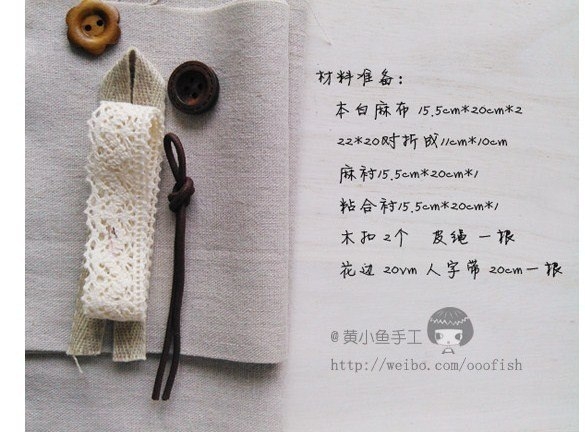 材料准备:
本白麻布 15.5cm*20cm*2
22*20对折成11cm*10cm
麻衬15.5cm*20cm*1
粘合衬15.5cm*20cm*1
木扣 2个 皮绳 一根
花边 20vm 人字带 20cm一根
@黄小鱼手工
http://weibo.com/ooofish